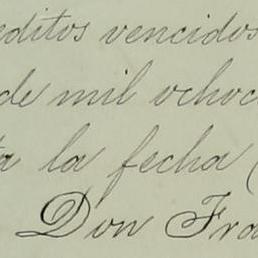 editos vencidos
de mil ochoc
ta la fecha (
Don Fra